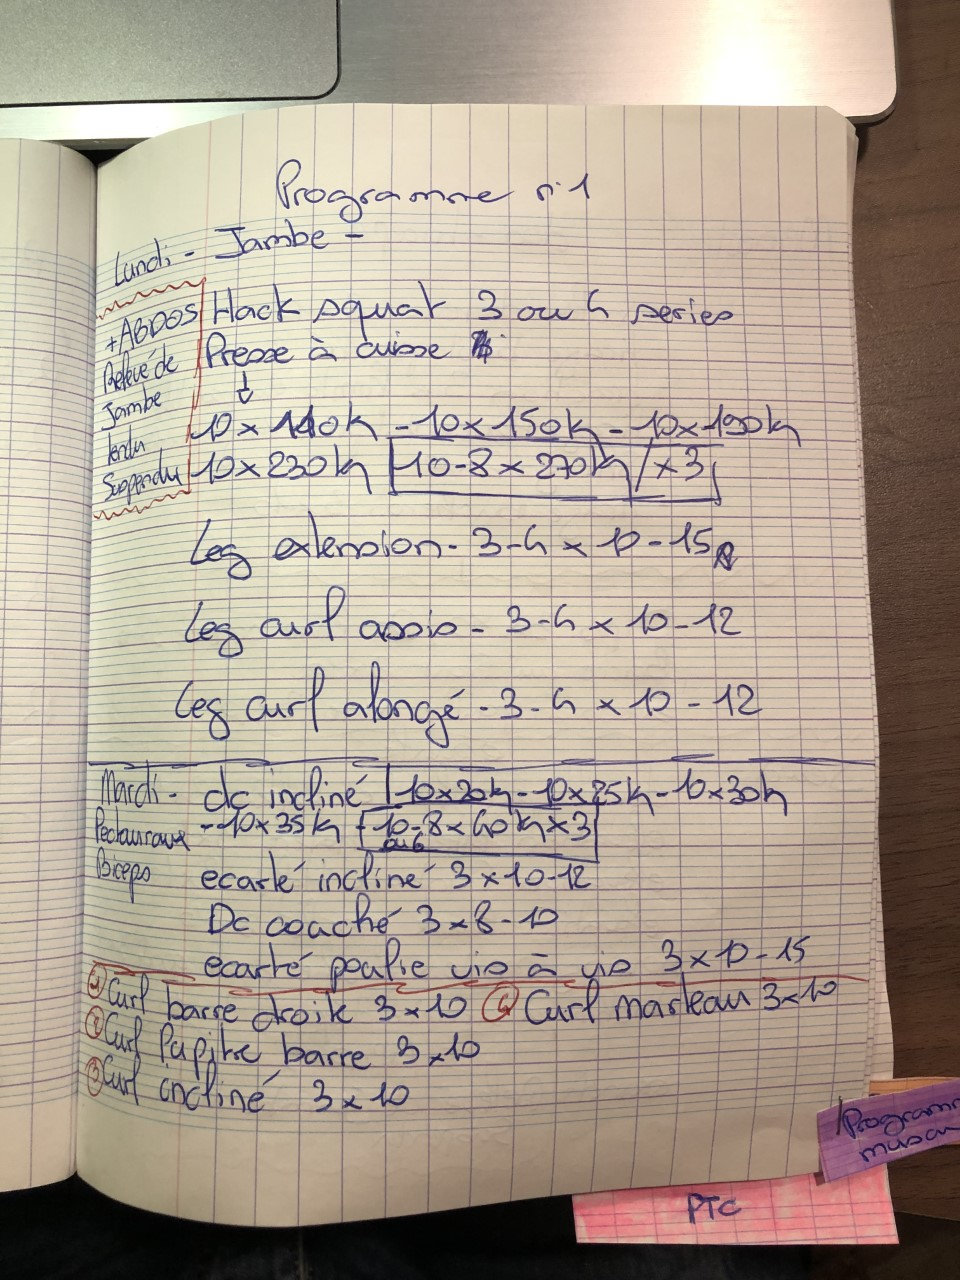 Programme n°1
Lundi - Jambe -
+ABDOS
Relevé de
Jambe
tendu
Suspendu
Hack squat 3 ou 4 series
Presse à cuisse
↓
10 x 110k - 10 x 150k - 10 x 190k
10 x 230k 10-8 x 270k / x 3
Leg extension - 3-4 x 10-15
Leg curl assis - 3-4 x 10-12
Leg curl alongé - 3-4 x 10-12
Mardi -
Pectauraux
Biceps
dc incliné 10x20k - 10x25k - 10x30k
- 10x35k - 10-8 x 40k x 3
ou 6
ecarté incliné 3x10-12
Dc couché 3x8-10
ecarté poulie vis à vis 3x10-15
Curl barre droite 3x10 ④ Curl marteau 3x10
Curl Pupitre barre 3x10
③ Curl incliné 3x10
Programm
PTC